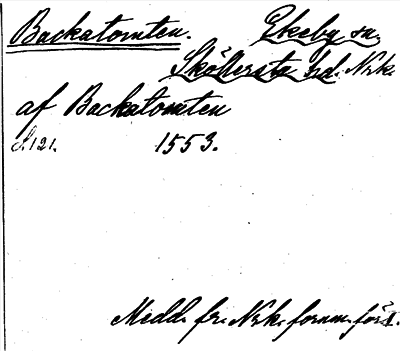 Backatomten. Ekeby sn.
Sköllersta hd. Nrk.
af Backatomten
S. 121. 1553.
Medd. fr. Nrk. fornm. för. I.